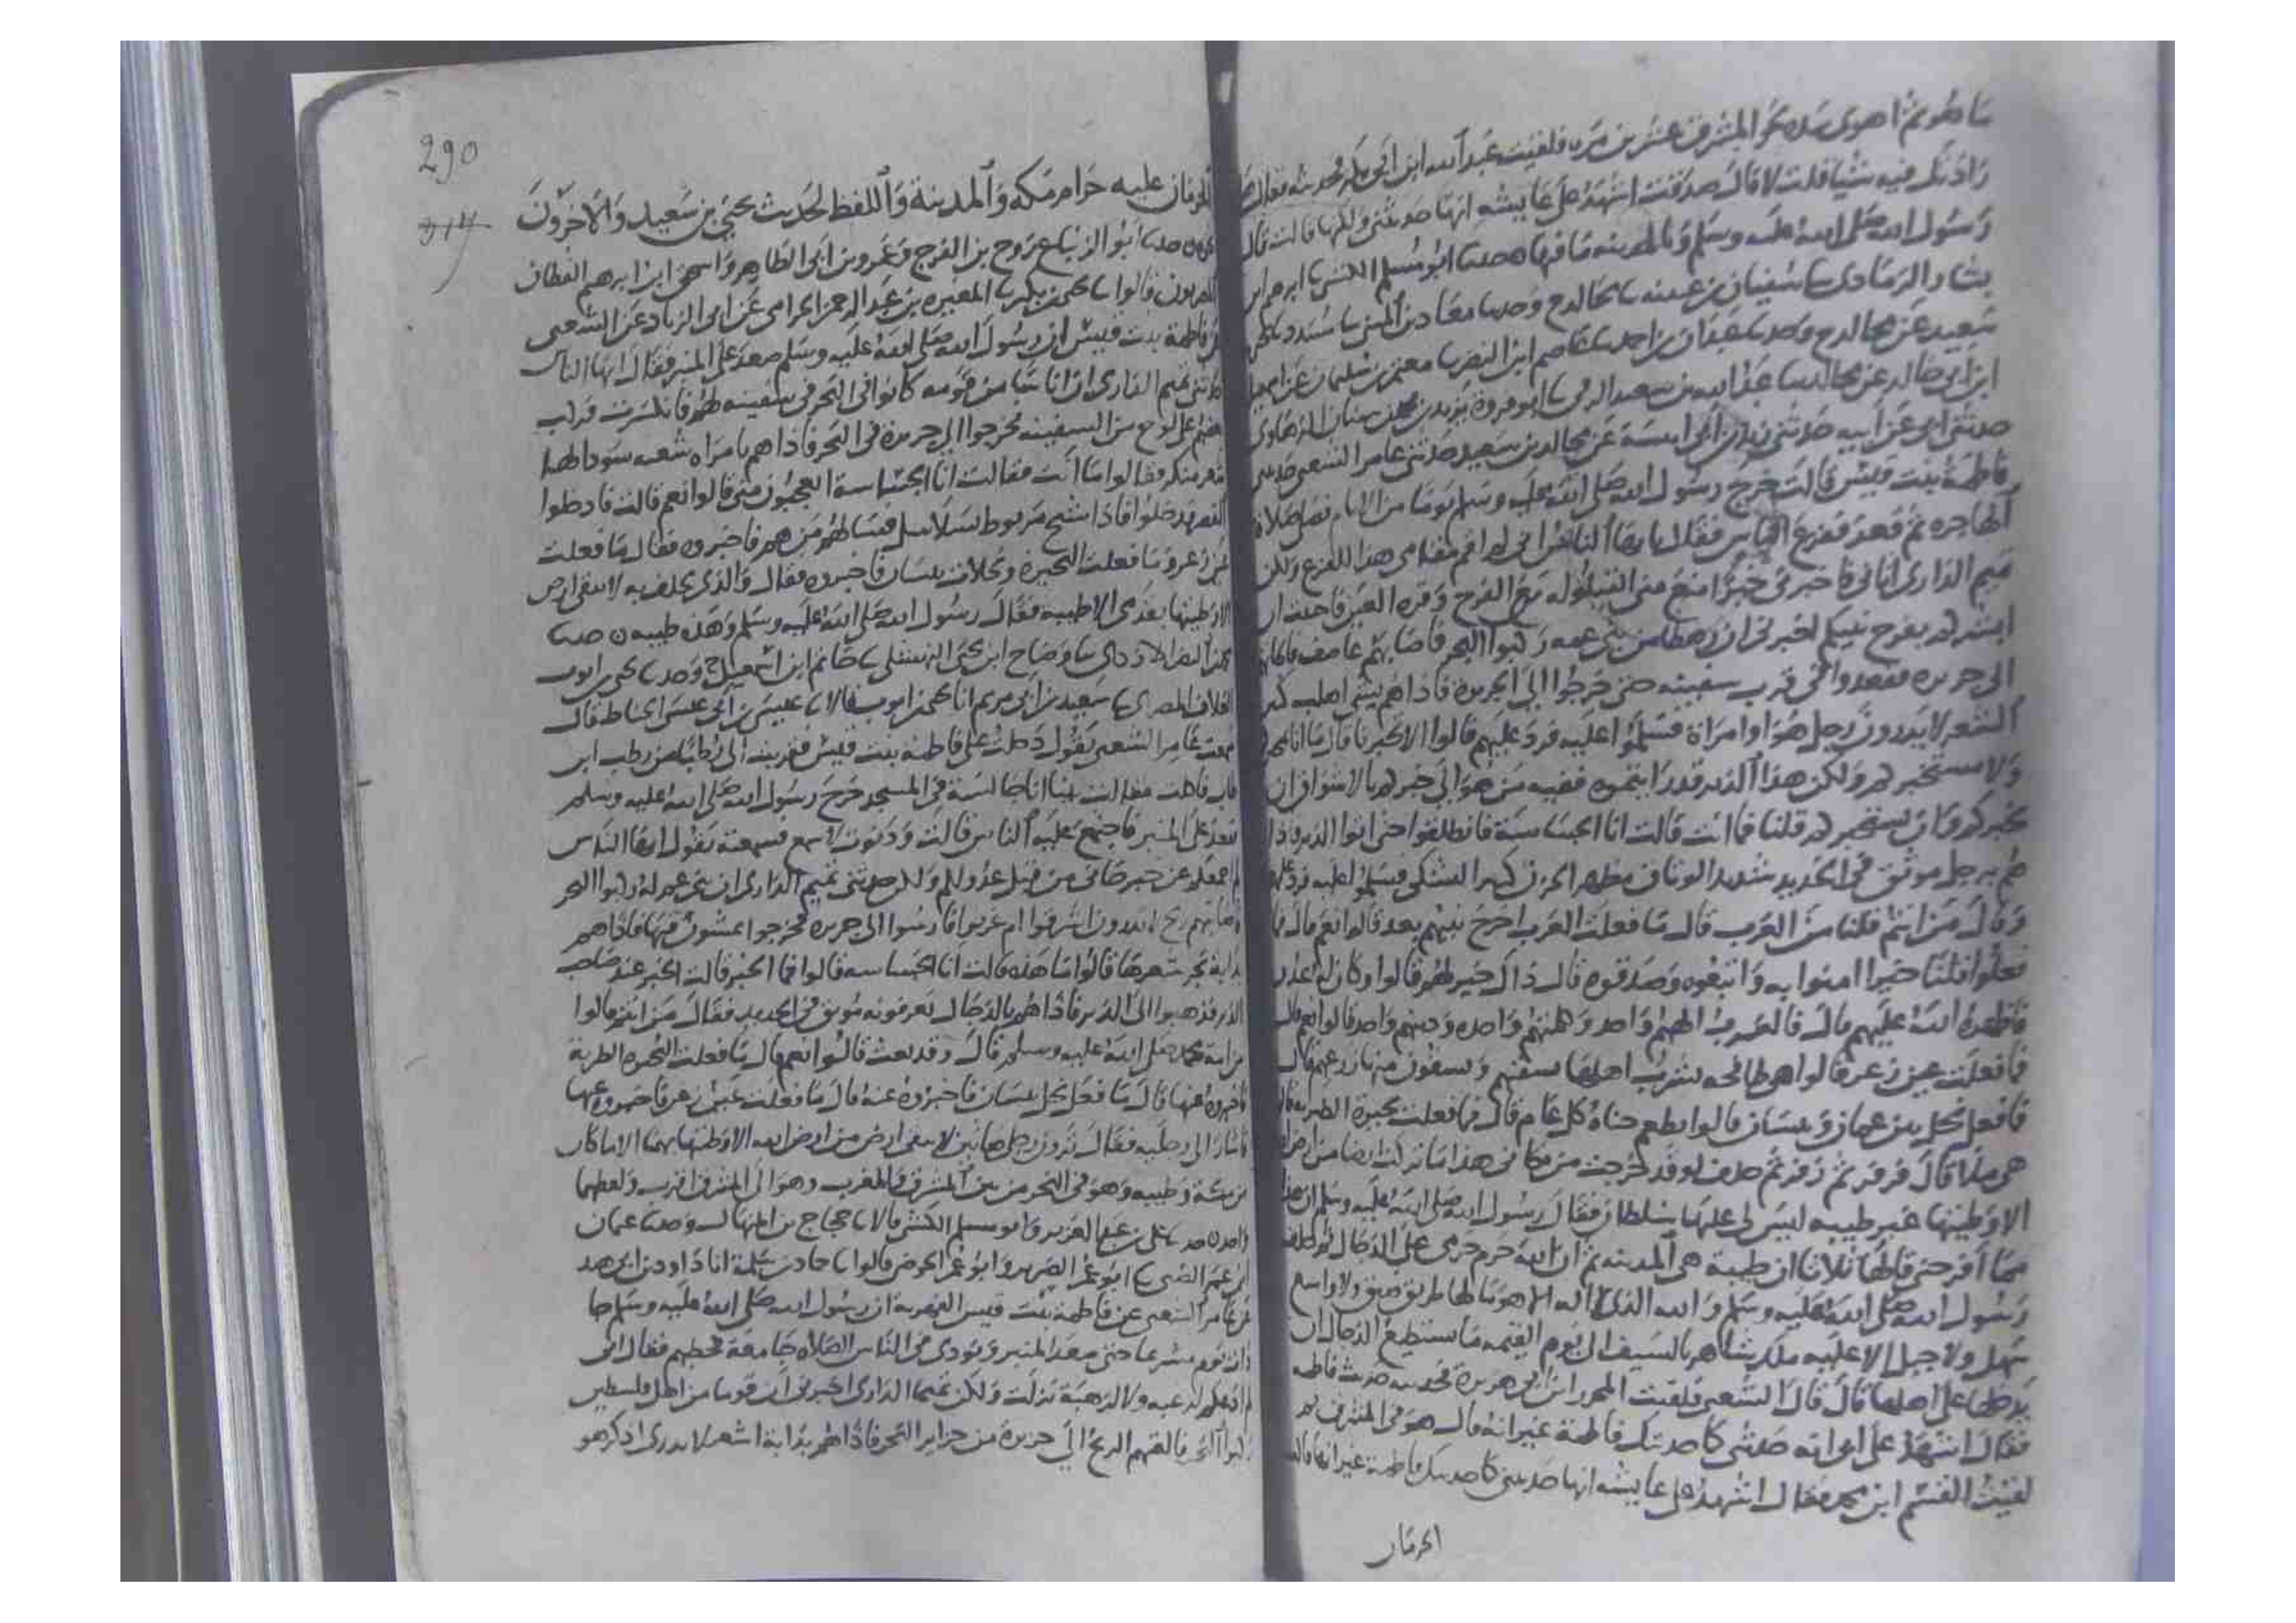 ما هو ثم اهوى بيده نحو المشرق عشرين مره فلقيت عبد الله ابن ابي بكر فحدثته فقال هل
زادتك فيه شيا قلت لا قال صدقت اشهد على عايشه انها حدثتني ولكنها قالت قال
رسول الله صلى الله عليه وسلم والمدينه ما فيها حدثنا ابو مسلم الكشي ثنا ابرهيم ابن
بشار الرمادي ثنا سفيان بن عيينه ثنا مجالد ح وحدثنا معاذ بن المثنى ثنا مسدد ثنا يحيى بن
سعيد عن مجالد ح وحدثنا عبدان بن احمد ثنا عاصم ابن النضر ثنا معتمر بن سليمان عن اسمعيل
ابن ابي خالد عن مجالد ثنا عبد الله بن سعيد الرقي ثنا ابو فروة يزيد بن محمد بن سنان الرهاوي
حدثني ابي عن ابيه حدثني زيد بن ابي انيسة عن مجالد بن سعيد حدثني عامر الشعبي حدثتني
فاطمة بنت قيس قالت خرج رسول الله صلى الله عليه وسلم يوما من الايام فصلى صلاة
الهاجره ثم قعد ففزع الناس فقال يا ايها الناس اني لم اقم مقامي هذا لفزع ولكن
تميم الداري اتاني فاخبرني خبرا منع مني القيلوله مع الفرح وقره العين فاحببت ان
انشر لكم بفرح نبيكم اخبرني ان رهطا من بني عمه ركبوا البحر فاصابتهم عاصف فالجاتهم
الى جزيره فقعدوا في قرب سفينه حتى خرجوا الى الجزيرة فاذا هم بشي اهلب كبير
الشعر لا يدرون رجل هو او امراة فسلموا عليه فرد عليهم قالوا الا تخبرنا قال ما انا بمخبركم
ولا مستخبركم ولكن هذا الدير قد رايتموه ففيه من هو الى خبركم بالاشواق ان
يخبركم وان يستخبركم قلنا فما انت قالت انا الجساسة فانطلقوا حتى اتوا الدير فاذا
هم برجل موثق في الحديد شديد الوثاق مظهر الحزن كبير الشكي فسلموا عليه فرد عليهم
وقال من انتم قلنا من العرب قال ما فعلت العرب اخرج نبيهم بعد قالوا نعم قال فما
فعلوا قلنا خيرا امنوا به واتبعوه وصدقوه قال ذاك خير لهم قالوا وكان له عدو
فاظهره الله عليهم قال فالعرب الههم واحد وقبلتهم واحده ودينهم واحد قالوا نعم قال
فما فعلت عين زعر قالوا هي طافحه يشرب اهلها بسقيهم ويسقون منها زرعهم قال
فما فعل نخل بين عمان وبيسان قالوا يطعم جناه كل عام قال فما فعلت بحيرة الطبريه قالوا
هي ملا قال فزفر ثم زفر ثم حلف لو قد خرجت من مكاني هذا ما تركت ارضا من ارض الله
الا وطيتها غير طيبه ليس لي عليها سلطان فقال رسول الله صلى الله عليه وسلم ان هذا
مما افرحني قالها ثلاثا ان طيبة هي المدينه ثم ان الله حرم حرمي على الدجال ثم حلف
رسول الله صلى الله عليه وسلم والله الذي لا اله الا هو ما لها طريق ضيق ولا واسع
سهل ولا جبل الا عليه ملك شاهر بالسيف الى يوم القيمه ما يستطيع الدجال ان
يدخلها على اهلها قال قال الشعبي فلقيت المحرر ابن ابي هريرة فحدثته حديث فاطمه
فقال اشهد على ابي انه حدثني كما حدثتك فاطمة غير انه قال هو في المشرق ثم
لقيت القسم ابن محمد فقال اشهد على عايشه انها حدثتني كما حدثتك فاطمة غير انها قالت
الحرمان
290
الحرمان عليه حرام مكه والمدينة واللفظ لحديث يحيى بن سعيد والاخرون
نحوه حدثنا ابو الزنباع روح بن الفرج وعمرو بن ابي الطاهر واسحق ابن ابرهيم القطان
المصريون قالوا ثنا يحيى بن بكير ثنا المغيره بن عبد الرحمن الحزامي عن ابي الزناد عن الشعبي
عن فاطمة بنت قيس ان رسول الله صلى الله عليه وسلم صعد على المنبر فقال ايها الناس
حدثني تميم الداري ان اناسا من قومه كانوا في البحر في سفينه لهم فانكسرت فركب
بعضهم على لوح من السفينه فخرجوا الى جزيرة في البحر فاذا هم بامراه شعثه سودا لها
شعر منكر فقالوا ما انت فقالت انا الجساسة اتعجبون مني قالوا نعم قالت فادخلوا
القصر فدخلوا فاذا شيخ مربوط بسلاسل فسالهم من هم فاخبروه فقال ما فعلت
عين زعر وما فعلت البحيرة ونخلات بيسان فاخبروه فقال والذي يحلف به لا تبقى ارض
الا وطيتها بقدمي الا طيبه فقال رسول الله صلى الله عليه وسلم وهذه طيبه حدثنا
محمد بن النضر الازدي ثنا وضاح ابن يحيى النهشلي ثنا حاتم ابن اسمعيل ح وحدثنا يحيى بن ايوب
العلاف المصري ثنا سعيد بن ابي مريم انا يحيى بن ايوب قالا ثنا عيسى بن ابي عيسى الحناط قال
سمعت عامرا الشعبي يقول دخلت على فاطمة بنت قيس فقربت الى رطبا من رطب ابن
طاب فاكلت فقالت بينا انا جالسة في المسجد خرج رسول الله صلى الله عليه وسلم
فقعد على المنبر فاجتمع عليه الناس قالت ودنوت اسمع فسمعته يقول ايها الناس
لم اجمعكم عن خبر جاني من قبل عدوكم ولكن حدثني تميم الداري ان بني عم له ركبوا البحر
فاصابتهم ريح لا يدرون اشرقوا ام غربوا فارسوا الى جزيره فخرجوا يمشون فيها فاذا هم
بدابة تجر شعرها قالوا ما هذه قالت انا الجساسه قالوا فما الخبر قالت الخبر عند صاحب
الدير فذهبوا الى الدير فاذا هم بالدجال تعرفونه موثق في الحديد فقال من انتم قالوا
من امة محمد صلى الله عليه وسلم قال وقد بعث قالوا نعم قال ما فعلت البحيره الطبرية
فاخبروه عنها قال ما فعل نخل بيسان فاخبروه عنه قال ما فعلت عين زعر فاخبروه عنها
فاشار الى رجليه فقال ترون رجلي هاتين لا يبقى ارض من ارض الله الا وطيتها بهما الا ما كان
من مكة وطيبه وهو في البحر من بين المشرق والمغرب وهو الى المشرق اقرب ولفظهما
واحد حدثنا علي بن عبد العزيز وابو مسلم الكشي قالا ثنا حجاج بن المنهال وحدثنا عثمان
ابن عمر الضبي ثنا ابو عمر الضرير وابو عمر الحوضي قالوا ثنا حماد بن سلمة انا داود بن ابي هند
عن عامر الشعبي عن فاطمة بنت قيس الفهرية ان رسول الله صلى الله عليه وسلم جا
ذات يوم مسرعا حتى صعد المنبر ونودي في الناس الصلاه جامعة فخطبهم فقال اني
لم ادعكم لرغبه ولا لرهبة نزلت ولكن تميما الداري اخبرني ان قوما من اهل فلسطين
ركبوا البحر فالقتهم الريح الى جزيرة من جزاير البحر فاذا هم بدابة اشعر لا يدرى اذكر هو